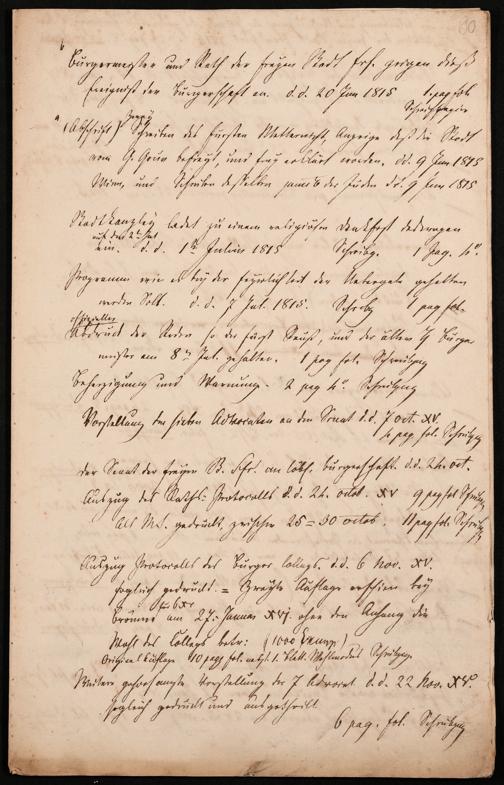 60
Bürgermeister und Rath der freyen Stadt Frf. zeigen dieses
Ereigniß der Bürgerschaft an. d.d. 20 Jun 1815 1. pag fol.
Schreibpapier
(Abschrift) Schreiben des Fürsten Metternich, Anzeige daß die Stadt
vom G. Gouv befreyt, und frey erklärt worden, d.d. 9 Jun 1815
Wien, und Schreiben desselben der Juden dd. 9 Jun 1815
Stadtkanzley ladet zu einem religiösen Dankfest deswegen
auf den
ein. d.d. 1 Julius 1815 Schreibp. 1 Pag. 4°.
Programm wie es bey der Feyerlichkeit der Uebergabe gehalten
werden soll. d.d. 7 Jul. 1815. Schreibp 1 pag fol.
offizieller
Abdruck der Reden so der Fürst Reuß, und der ältere H Bürger
meister am 8 Jul. gehalten. 1 pag fol. Schreibpap
Beherzigung und Warnung. 2 pag 4°. Schreibpap
Vorstellung der sieben Advocaten an den Senat d.d. 7 oct. XV.
4 pag fol. Schreibpap
der Senat der freyen St. Ffr. an löbl. Bürgerschaft. d.d. 24. oct.
Auszug des Raths-Protocolls d.d. 24. octob. XV 9 pag fol Schreibp
als MS. gedruckt, zwischen 25 = 30 octob. 11 pag fol. Schreibp
Auszug Protocolls des Bürger Collegs. d.d. 6 Nov. XV.
sogleich gedruckt. = Zweyte Auflage erschien bey
Brönner am 27. Januar XVI. ohne den Anhang die
Wahl des Collegs betr: (1000 Exempl)
Original Auflage 10 pag fol. nebst 1. Blatt. Wahlmodus Schreibpap.
Weitere gehorsamste Vorstellung der 7 Advocat d.d. 22 Nov. XV.
sogleich gedruckt und ausgetheilt
6 pag. fol. Schreibpap